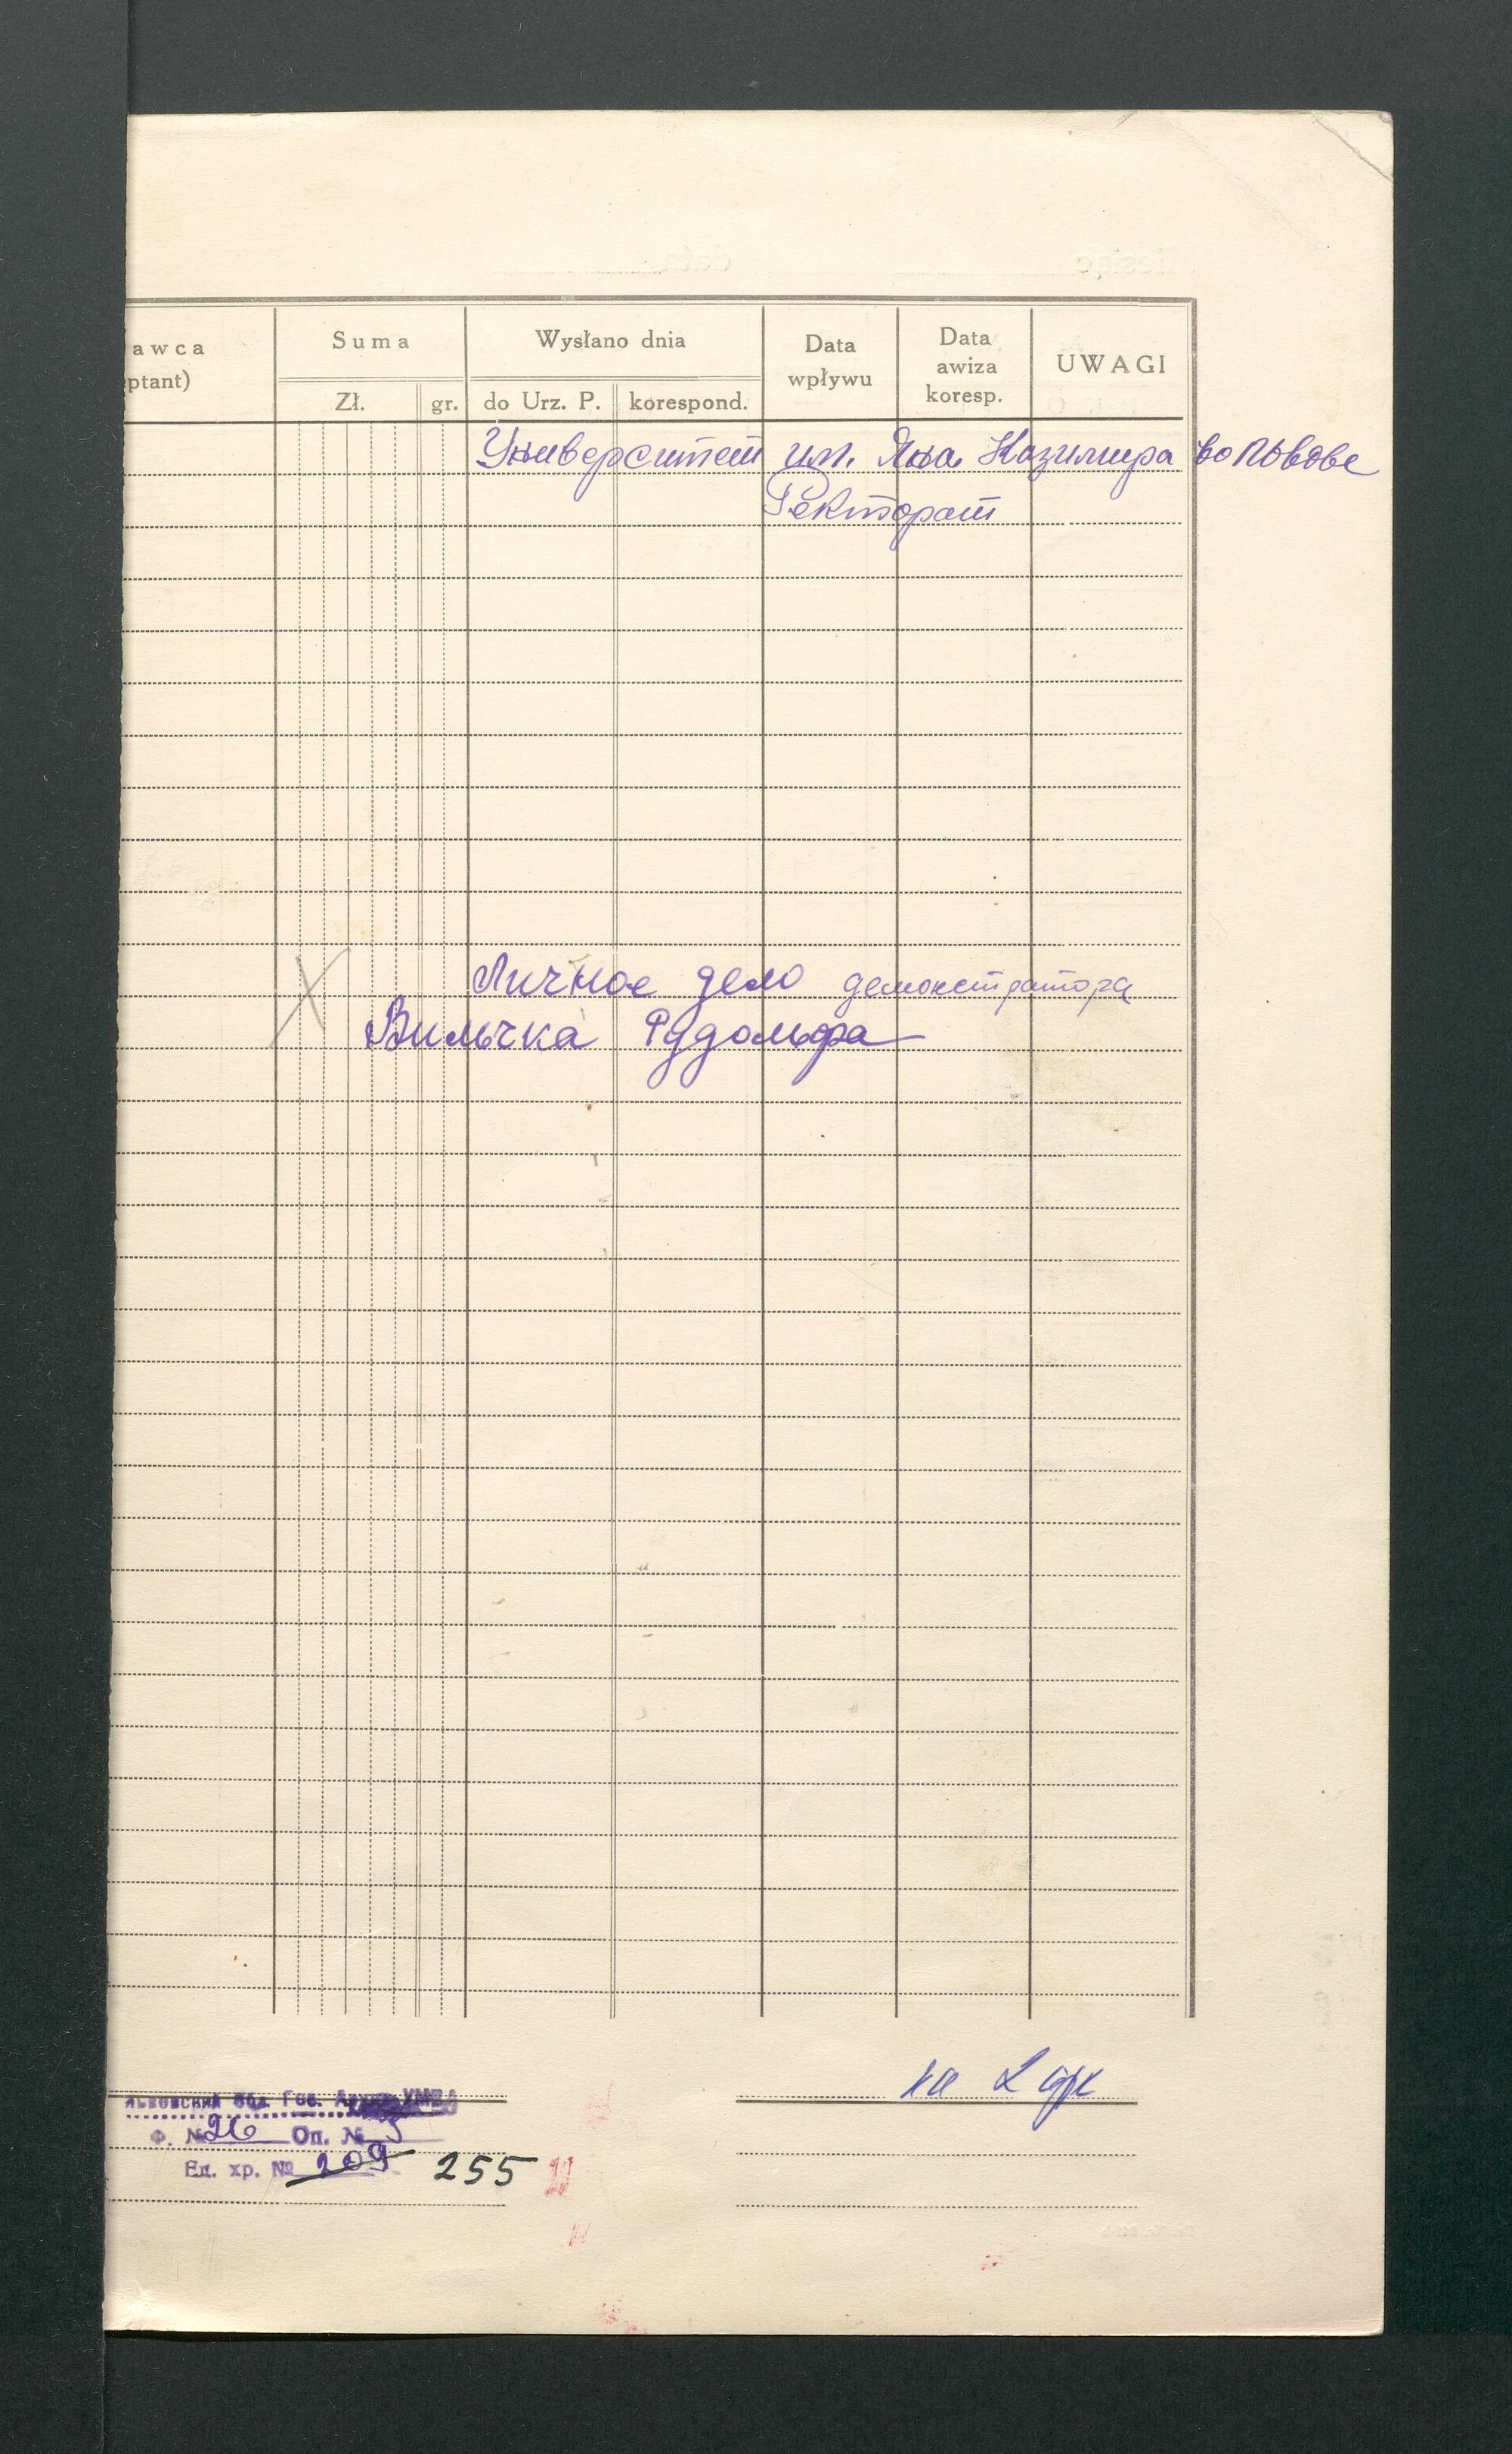 awca
ptant)
Suma
Zł. gr.
Wysłano dnia
do Urz. P. korespond.
Data
wpływu
Data
awiza
koresp.
UWAGI
Университет им. Яна Казимира во Львове
Ректорат
Личное дело демонстратора
Вильчка Рудольфа
на 2
Львовский Обл. Гос. Архив
Ф. № 26 Оп. № 5
Ед. хр. № 209 255